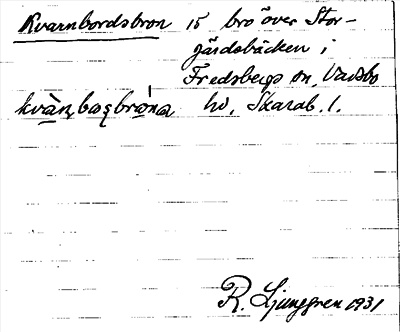 Kvarnbordsbron 15 bro över Stor-
gårdsbäcken i
Fredsbergs sn, Vadsbo
hd, Skarab. l.
R. Ljunggren 1931